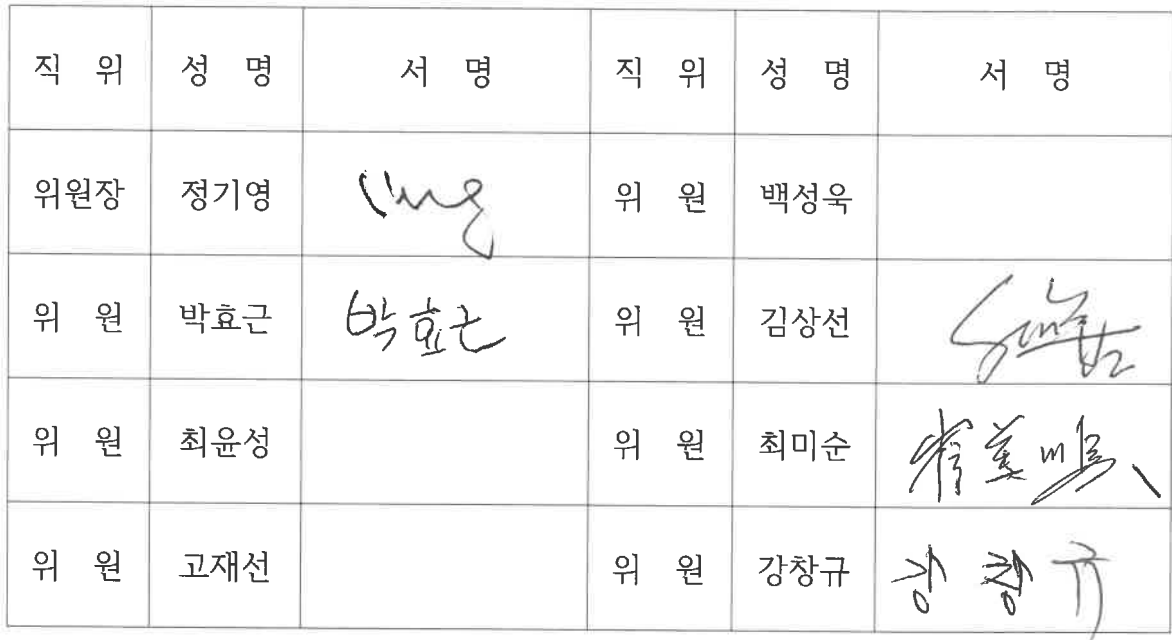 직 위 성 명 서 명 직 위 성 명 서 명
위원장 정기영 위 원 백성욱
위 원 박효근 박효근 위 원 김상선
위 원 최윤성 위 원 최미순 崔美順
위 원 고재선 위 원 강창규 강창규